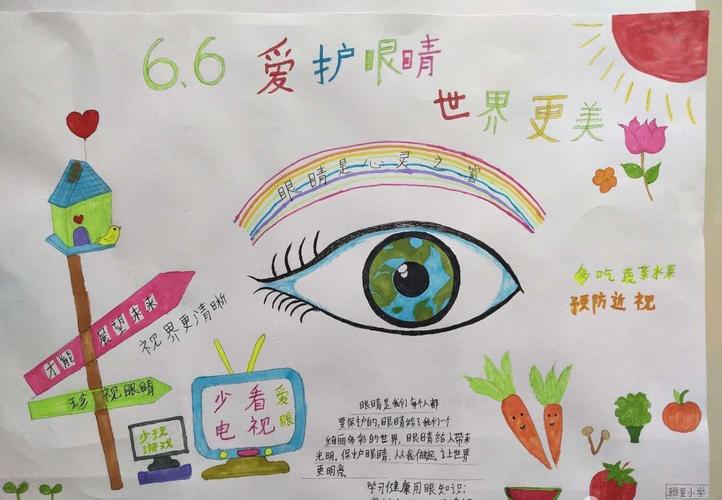 6.6 爱护眼晴
世界更美
眼晴是心灵之窗
多吃蔬菜水果
预防近视
才能展望未来
视界更清晰
珍视眼睛
少玩
游戏
少看
电视
爱
眼
眼晴是我们每个人都
要保护的,眼晴给了我们一个
绚丽多彩的世界,眼晴给人带来
光明,保护眼晴,从我做起,让世界
更明亮.
学习健康用眼知识: